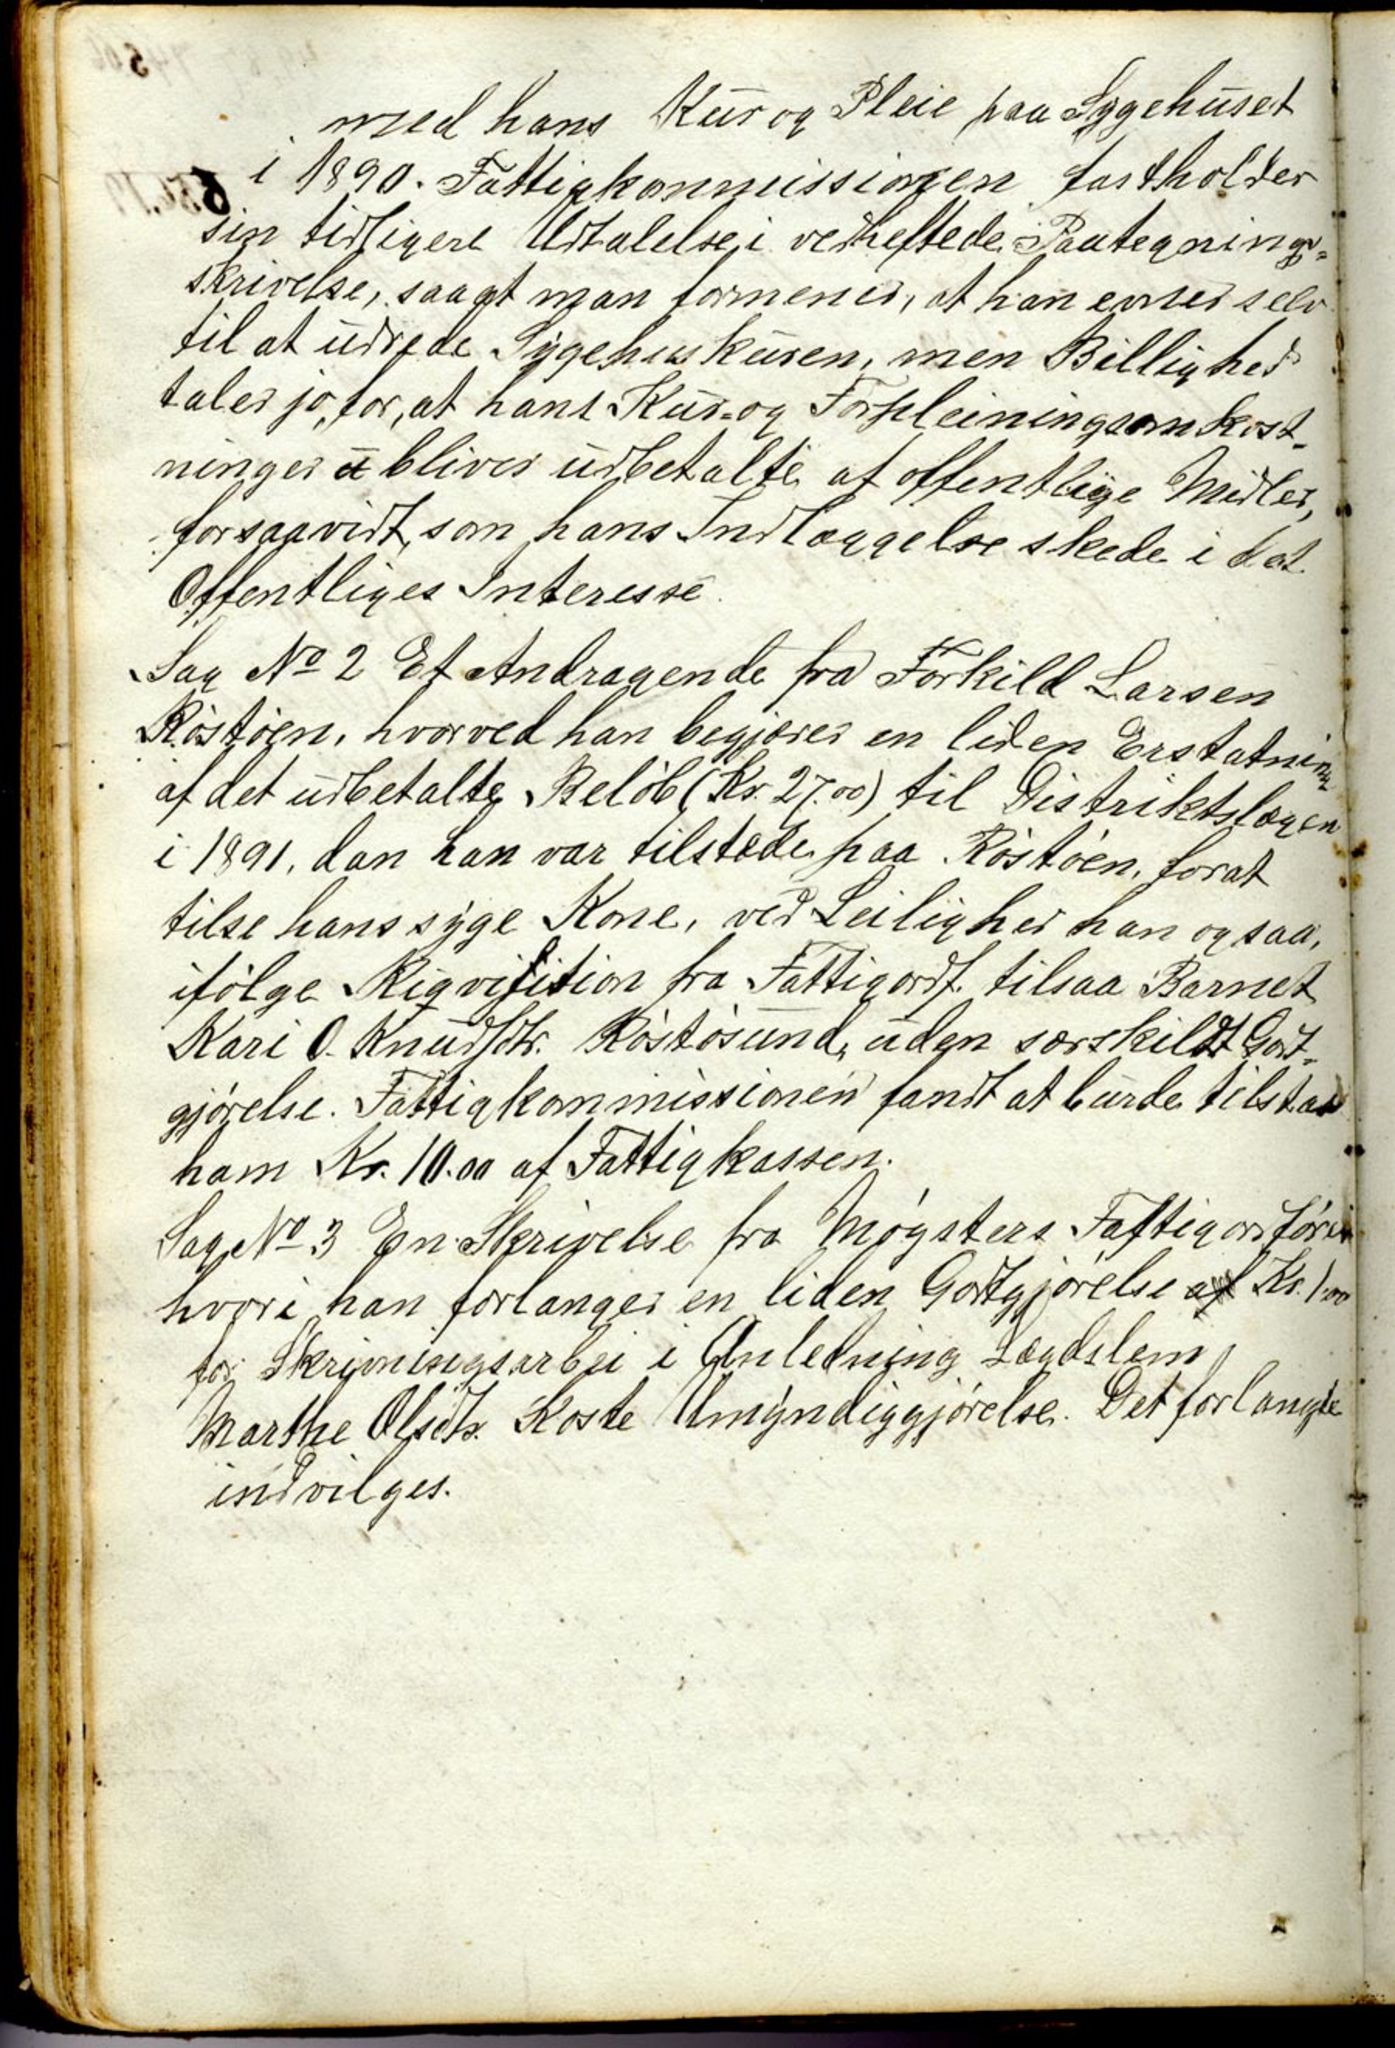 med hans Kur og Pleie paa Sygehuset
i 1890. Fattigkommissionen fastholder
sin tidligere Udtalelse i vedheftede Paategnings-
skrivelse, saagt man formener, at han evner selv
til at udrede Sygehuskuren, men Billighed
taler jo for, at hans Kur- og Forpleiningsomkost-
ninger bliver udbetalte af offentlige Midler,
forsaavidt, som hans Indlæggelse skede i det
Offentliges Interesse.
Sag No 2 Et Andragende fra Torkild Larsen
Röstöen, hvorved han begjærer en liden Erstatning
af det udbetalte Belöb (Kr. 27.00) til Distriktslægen
i 1891, dan han var tilstede paa Röstöen, forat
tilse hans syge Kone, ved Leilighed han ogsaa,
ifölge Riqvisition fra Fattigordf. tilsaa Barnet
Kari O. Knudsdtr. Röstösund, uden særskildt Godt-
gjörelse. Fattigkommissionen fandt at burde tilstaa
ham Kr. 10.00 af Fattigkassen.
Sag No 3 En Skrivelse fra Møgsters Fattigordförer
hvori han forlanger en liden Godtgjörelse af Kr. 1.00
for Skrivningsarbei i Anledning Lægdslem
Marthe Olsdtr. Koste Umyndiggjörelse. Det forlangte
indvilges.